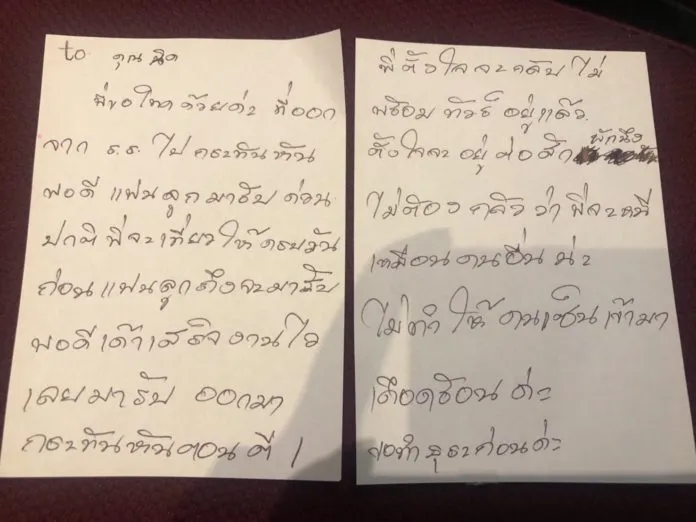 to คุณ นิด
พี่ขอโทษด้วยค่ะ ที่ออก
จาก ร.ร. ไป กระทันหัน
พอดี แฟนลูกมารับ ก่อน
ปกติ พี่จะเที่ยวให้ครบวัน
ก่อน แฟนลูกถึงจะมารับ
พอดี เค้าเสร็จงานไว
เลยมารับ ออกมา
กระทันหันตอนตี 1
พี่ตั้งใจจะกลับ ไม่
พร้อม ทัวร์ อยู่แล้ว.
ตั้งใจจะอยู่ ต่อสัก พักนึง
ไม่ต้อง กลัว ว่า พี่จะหนี
เหมือนคนอื่น น่ะ
ไม่ทำ ให้ คนเซ็น เข้ามา
เดือดร้อน ค่ะ
ขอทำธุระก่อนค่ะ